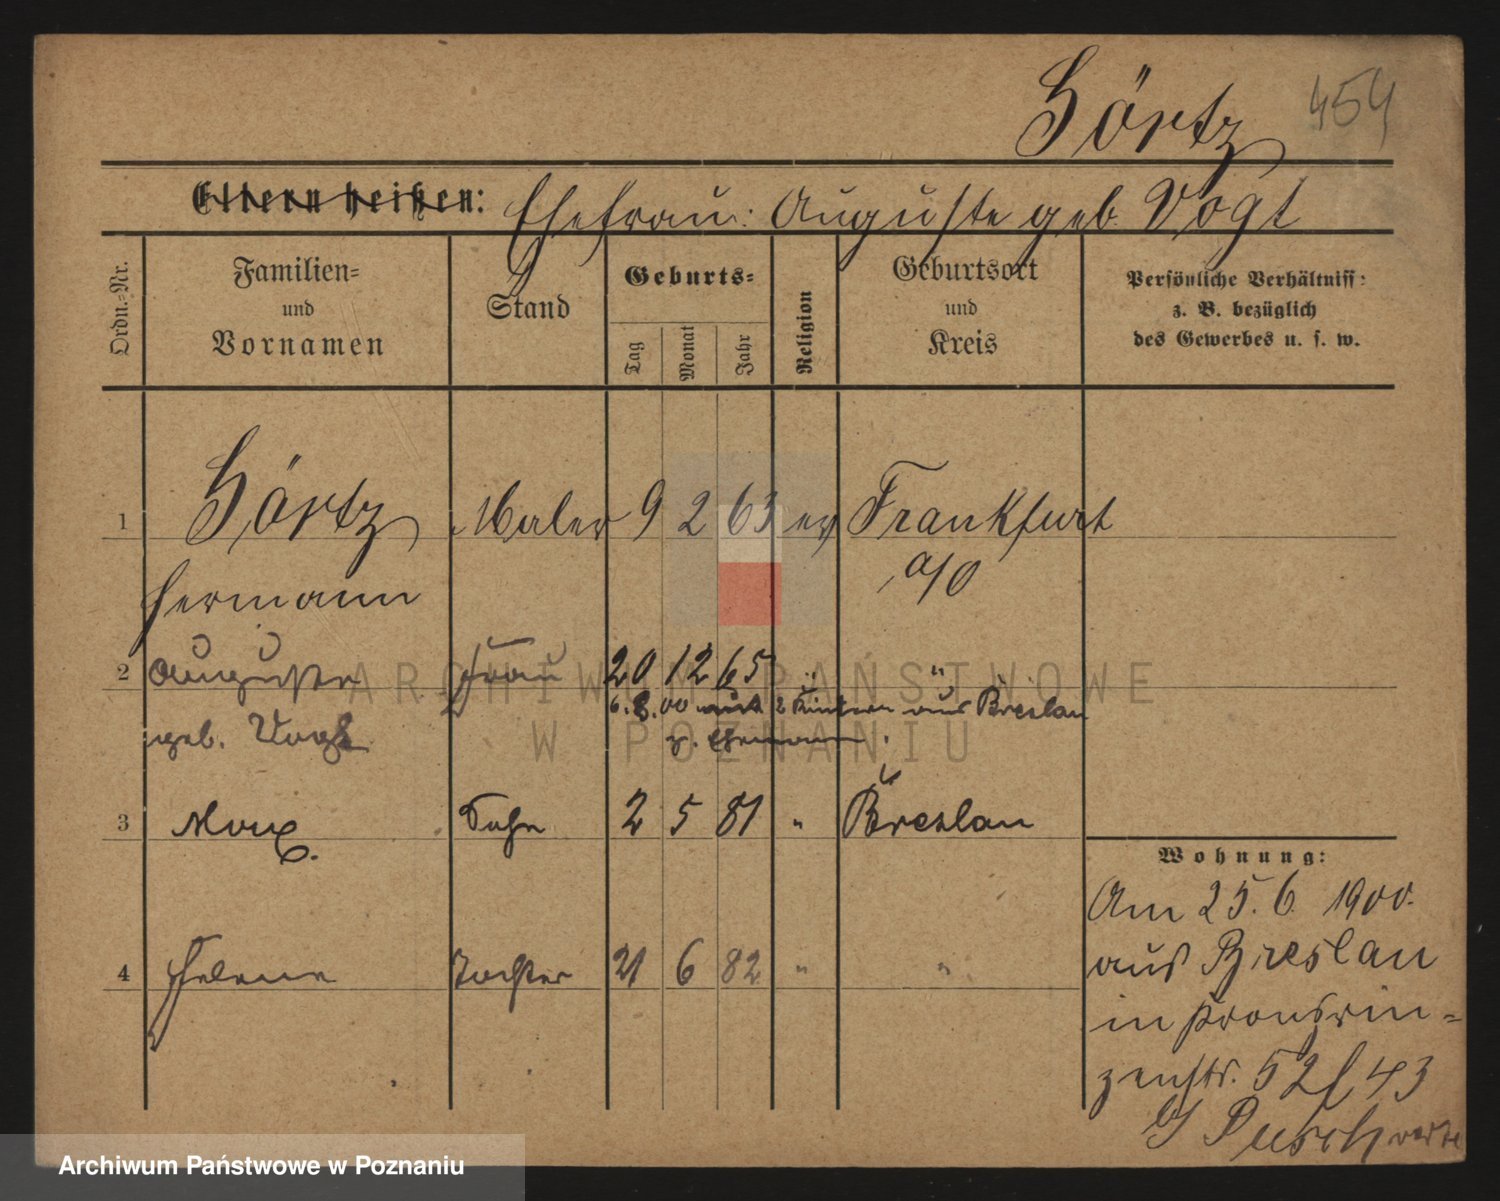 Görtz 454
Eltern heißen: Ehefrau: Auguste geb. Vogt
Ordn.-Nr.
Familien-
und
Vornamen
Stand
Geburts-
Tag
Monat
Jahr
Religion
Geburtsort
und
Kreis
Persönliche Verhältniss:
z. B. bezüglich
des Gewerbes u. s. w.
1 Görtz Maler 9 2 63 ev Frankfurt
a/O
Hermann
2 Auguste Frau 20 12 65 " "
6.8.00 mit 2 Kindern aus Breslau
geb. Vogt z. Ehemann.
3 Max. Sohn 2 5 81 " Breslau
4 Helene Tochter 21 6 82 " "
Wohnung:
Am 25.6. 1900.
aus Breslau
in Kronprin-
zenstr. 52/43
b/
ARCHIWUM PAŃSTWOWE
W POZNANIU
Archiwum Państwowe w Poznaniu